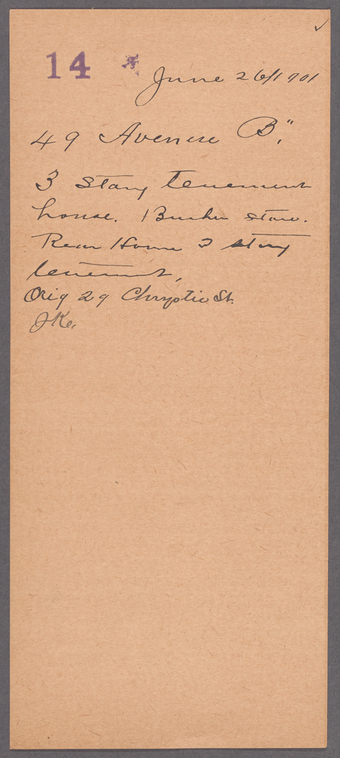 14
June 26/1901
49 Avenue B",
3 Story tenement
house. Butcher store.
Rear House 3 story
tenement,
Orig 29 Chrystie St.
JK.